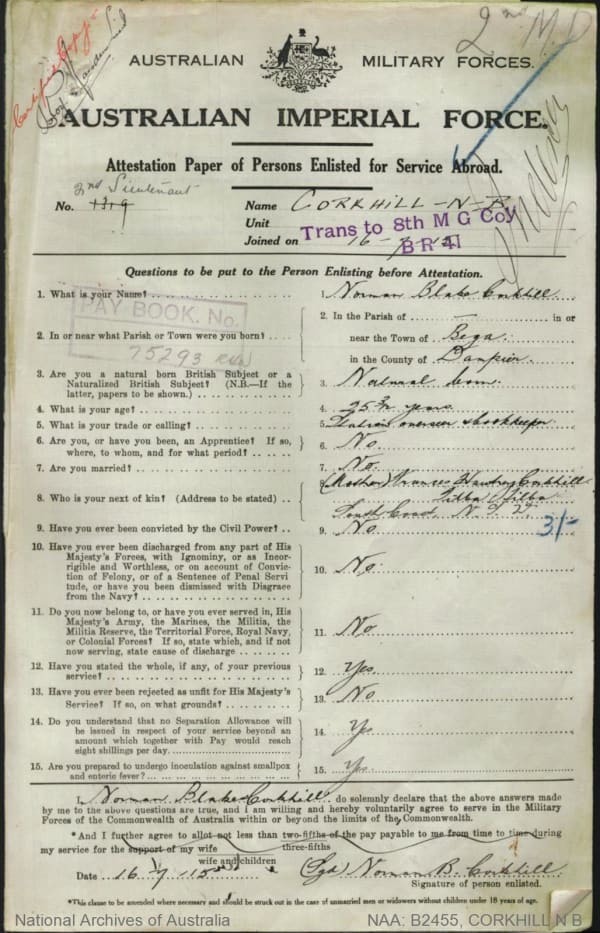 Certified Copy
2nd M.D.
AUSTRALIAN MILITARY FORCES.
AUSTRALIAN IMPERIAL FORCE.
Attestation Paper of Persons Enlisted for Service Abroad.
2nd Lieutenant
No. 1319 Name CORKHILL - N - B
Unit Trans to 8th M G Coy
Joined on 16-7-15 B R 41
Questions to be put to the Person Enlisting before Attestation.
1. What is your Name? 1. Norman Blake Corkhill
PAY BOOK. No.
75293
2. In or near what Parish or Town were you born? 2. In the Parish of — in or
near the Town of Bega
in the County of Dampier
3. Are you a natural born British Subject or a
Naturalized British Subject? (N.B.—If the
latter, papers to be shown.) 3. Natural born.
4. What is your age? 4. 25 3/12 years
5. What is your trade or calling? 5. Station overseer & bookkeeper
6. Are you, or have you been, an Apprentice? If so,
where, to whom, and for what period? 6. No.
7. Are you married? 7. No.
8. Who is your next of kin? (Address to be stated) 8. (Mother) Frances Corkhill
Tilba Tilba
South Coast N.S.W.
9. Have you ever been convicted by the Civil Power? 9. No 3/-
10. Have you ever been discharged from any part of His
Majesty's Forces, with Ignominy, or as Incor-
rigible and Worthless, or on account of Convic-
tion of Felony, or of a Sentence of Penal Servi
tude, or have you been dismissed with Disgrace
from the Navy? 10. No.
11. Do you now belong to, or have you ever served in, His
Majesty's Army, the Marines, the Militia, the
Militia Reserve, the Territorial Force, Royal Navy,
or Colonial Forces? If so, state which, and if not
now serving, state cause of discharge 11. No
12. Have you stated the whole, if any, of your previous
service? 12. Yes
13. Have you ever been rejected as unfit for His Majesty's
Service? If so, on what grounds? 13. No
14. Do you understand that no Separation Allowance will
be issued in respect of your service beyond an
amount which together with Pay would reach
eight shillings per day. 14. Yes
15. Are you prepared to undergo inoculation against smallpox
and enteric fever? 15. Yes
I, Norman Blake Corkhill do solemnly declare that the above answers made
by me to the above questions are true, and I am willing and hereby voluntarily agree to serve in the Military
Forces of the Commonwealth of Australia within or beyond the limits of the Commonwealth.
*And I further agree to allot not less than two-fifths of the pay payable to me from time to time during
three-fifths
my service for the support of my wife
wife and children
Date 16-7-1915 (Sgd) Norman B. Corkhill
Signature of person enlisted.
*This clause to be amended where necessary and should be struck out in the case of unmarried men or widowers without children under 18 years of age.
National Archives of Australia NAA: B2455, CORKHILL N B